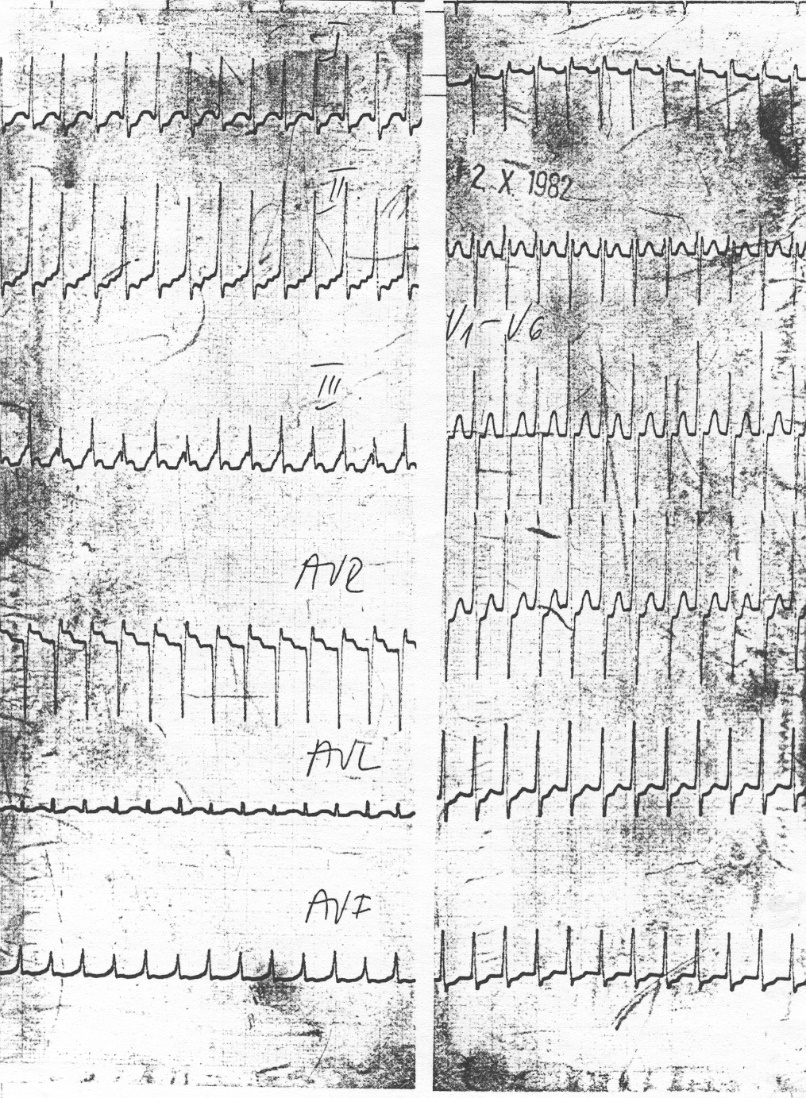 I
II
III
AVR
AVL
AVF
2. X 1982
V1-V6